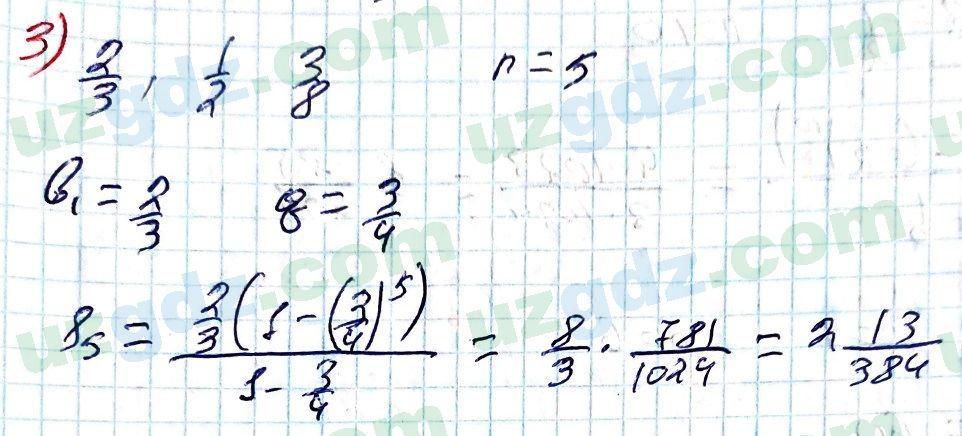 3) 2/3, 1/2 3/8 n = 5
b₁ = 2/3 q = 3/4
S₅ = 2/3(1 - (3/4)⁵) / (1 - 3/4) = 8/3 · 781/1024 = 2 13/384
uzgdz.com
uzgdz.com
uzgdz.com
uzgdz.com
uzgdz.com
uzgdz.com